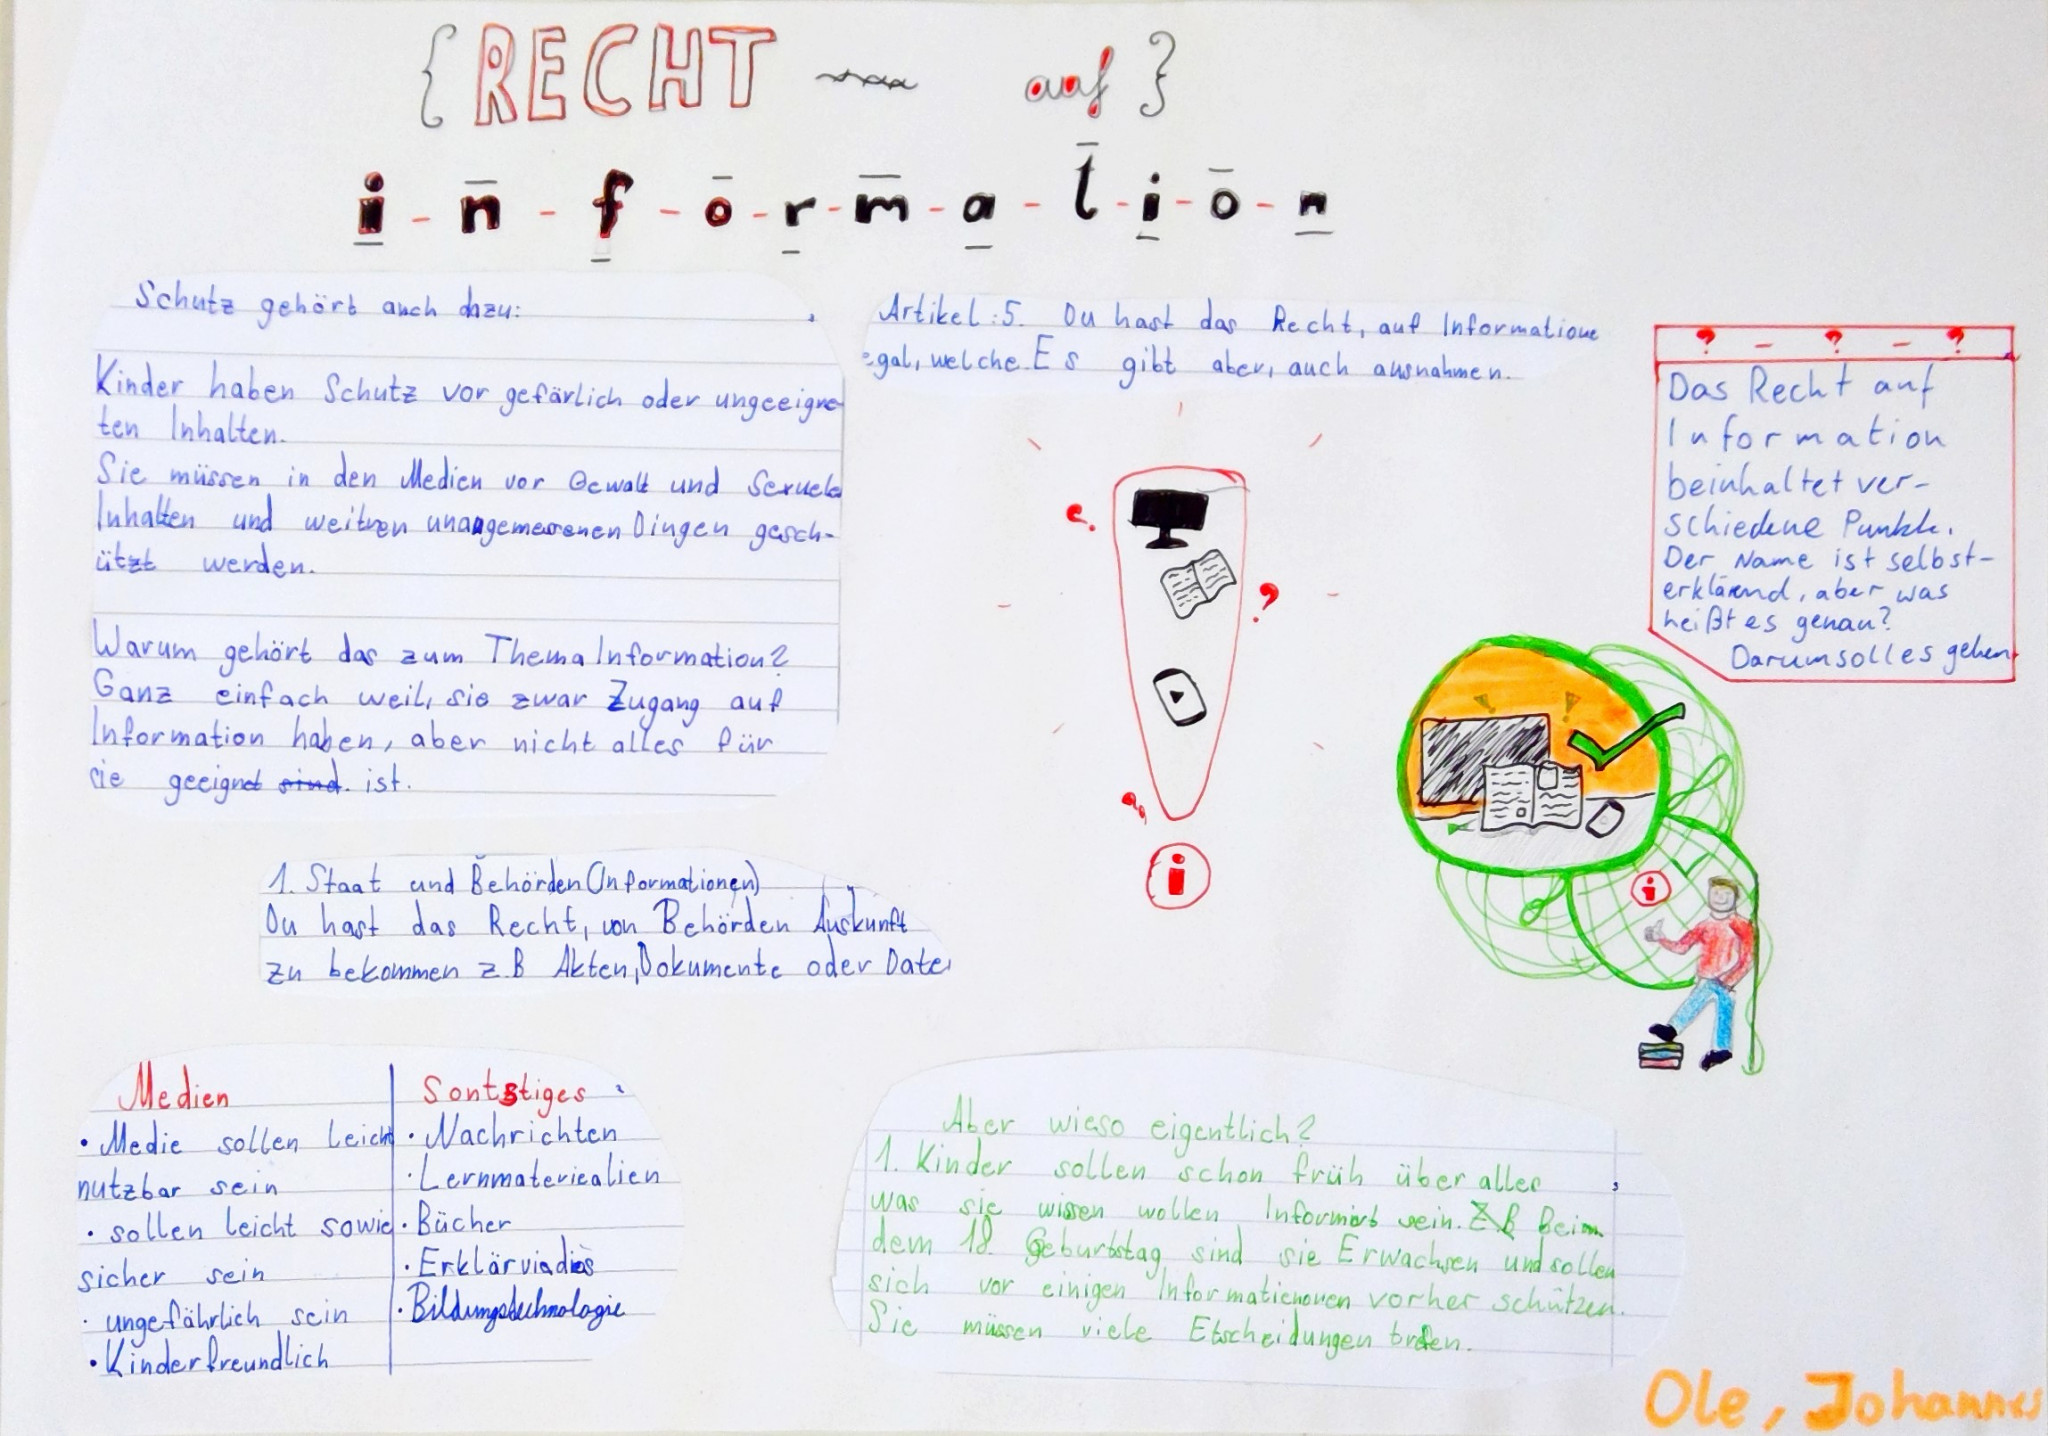 { RECHT auf }
i - n - f - o - r - m - a - t - i - o - n
Schutz gehört auch dazu:
Kinder haben Schutz vor gefärlich oder ungeeigne-
ten Inhalten.
Sie müssen in den Medien vor Gewalt und Sexuele
Inhalten und weitren unangemessenen Dingen gesch-
ützt werden.
Warum gehört das zum Thema Information?
Ganz einfach weil, sie zwar Zugang auf
Information haben, aber nicht alles für
sie geeignet sind. ist.
Artikel: 5. Du hast das Recht, auf Informatione
egal, welche. Es gibt aber, auch ausnahmen.
? - ? - ?
Das Recht auf
Information
beinhaltet ver-
schiedene Punkte.
Der Name ist selbst-
erklärend, aber was
heißt es genau?
Darum soll es gehen
i
i
1. Staat und Behörden (Informationen)
Du hast das Recht, von Behörden Auskunft
zu bekommen z.B Akten, Dokumente oder Date
Medien
• Medie sollen leicht
nutzbar sein
• sollen leicht sowie
sicher sein
• ungefährlich sein
• Kinderfreundlich
Sontstiges
• Nachrichten
• Lernmateriealien
• Bücher
• Erklärviedios
• Bildungstechnologie
Aber wieso eigentlich?
1. Kinder sollen schon früh über alles
was sie wissen wollen Informirt sein. Z.B Beim
dem 18. Geburtstag sind sie Erwachsen und sollen
sich vor einigen Informationen vorher schützen.
Sie müssen viele Etscheidungen trefen.
Ole, Johannes